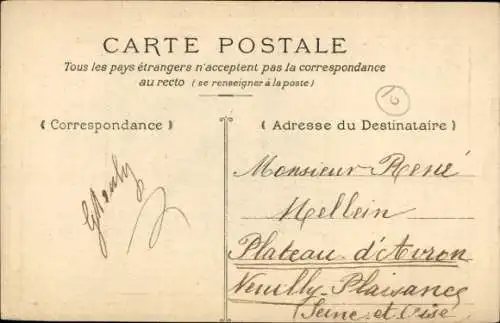 CARTE POSTALE
Tous les pays étrangers n'acceptent pas la correspondance
au recto (se renseigner à la poste)
( Correspondance )
( Adresse du Destinataire )
Monsieur René
Mellein
Plateau d'Avron
Neuilly-Plaisance
Seine et Oise